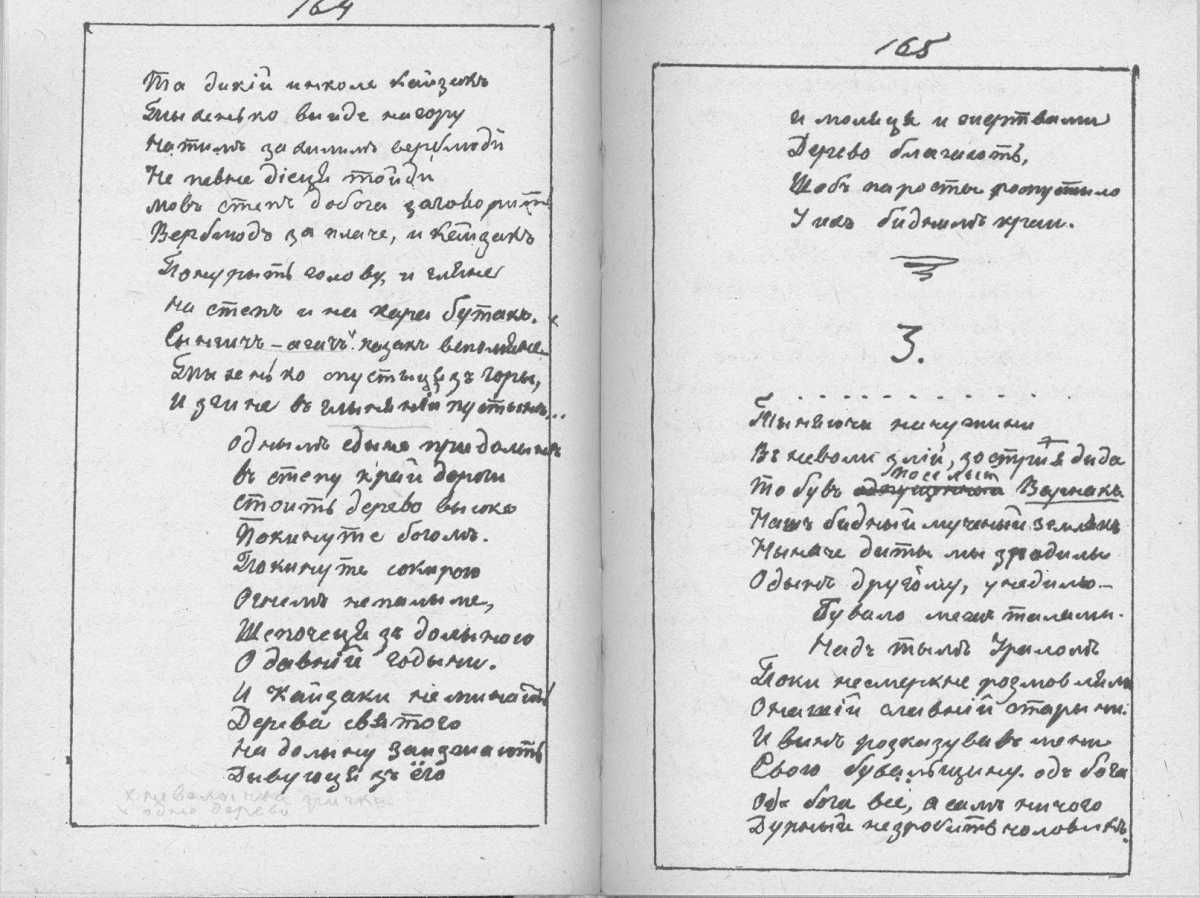 164
Та дикій инколе Кайзакъ
Тыхенько выиде на гору
На тимъ за вилимъ верблюди
Не певне дієця тойди
Мовъ степъ добога заговорить
Верблюдъ заплаче, и Кайзакъ
Понурыть голову, и гляне
На степъ и на кара бутакъ.
Сынгичъ-агачъ казакъ вспомяне
Тыхенько спустыця зъ горы,
И згине въ глыняній пустынѣ...
Однымъ єдыне при долынѣ
въ степу край дороги
Стоить дерево высоке
Покинуте богомъ.
Покинуте сокирою
Огнемъ непалыме,
Шепочеця зъ долыною
О давній годыни.
И Кайзаки неминають
Дерева святого
На долыну заизжають
Дивуюця зъ ёго
невеличка
одно дерево
165
И моляця и жертвами
Дерево благають,
Щобъ паросты ропустыло
У ихъ биднимъ краи.
3.
. . . . . . . . . . . .
Тыняючи на чужини
Въ неволи злій, зострия дида
То бувъ поселыт Варнакъ
Нашъ бидный мученый землякъ
Ныначе диты мы зрадилы
Одынъ другому, у недилю
Бувало межъ талами.
Надъ тымъ Ураломъ
Поки несмеркне розмовлялы
О нашій славній старыни.
И винъ розказувавъ мени
Свого бувальщину. одъ бога
Одъ бога все, а самъ ничого
Дурный незробить чоловикъ.